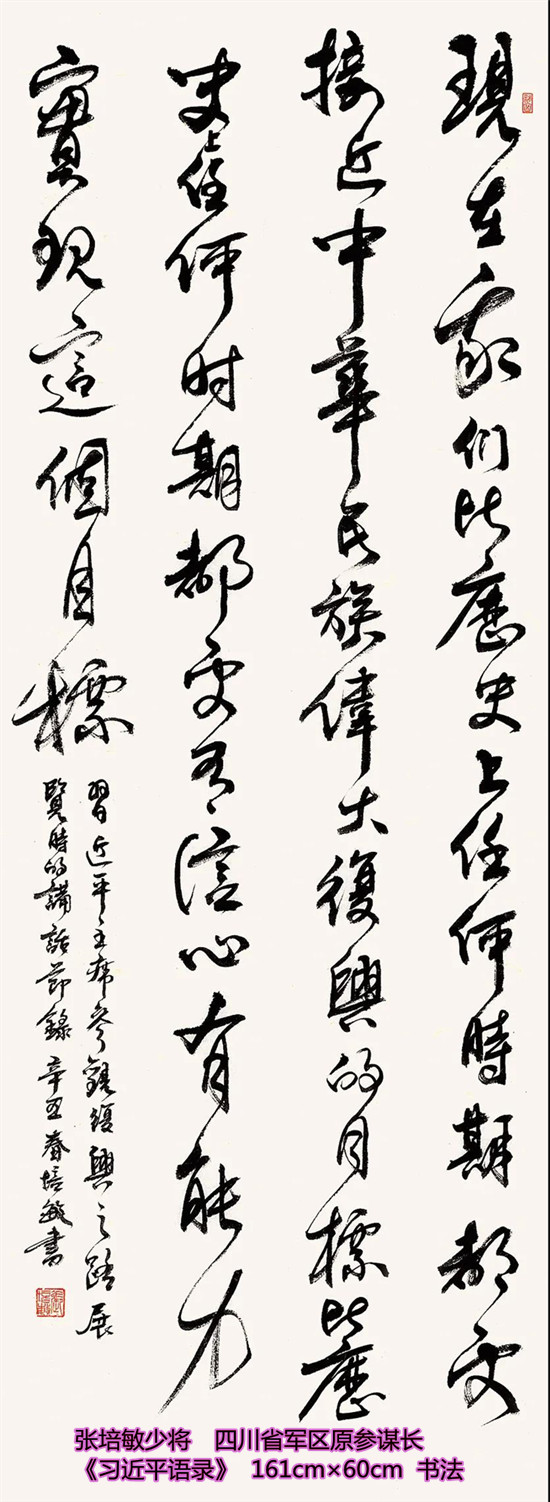 現在我们比歷史上任何時期都更
接近中華民族偉大復興的目標比歷
史上任何时期都更有信心有能力
實現這個目標
習近平主席參觀復興之路展
覽時的講話節錄 辛丑春培敏書
张培敏少将 四川省军区原参谋长
《习近平语录》 161cm×60cm 书法